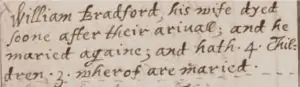 William Bradford, his wife dyed
soone after their arivall; and he
maried againe; and hath .4. Chil-
dren .2. wherof are maried.